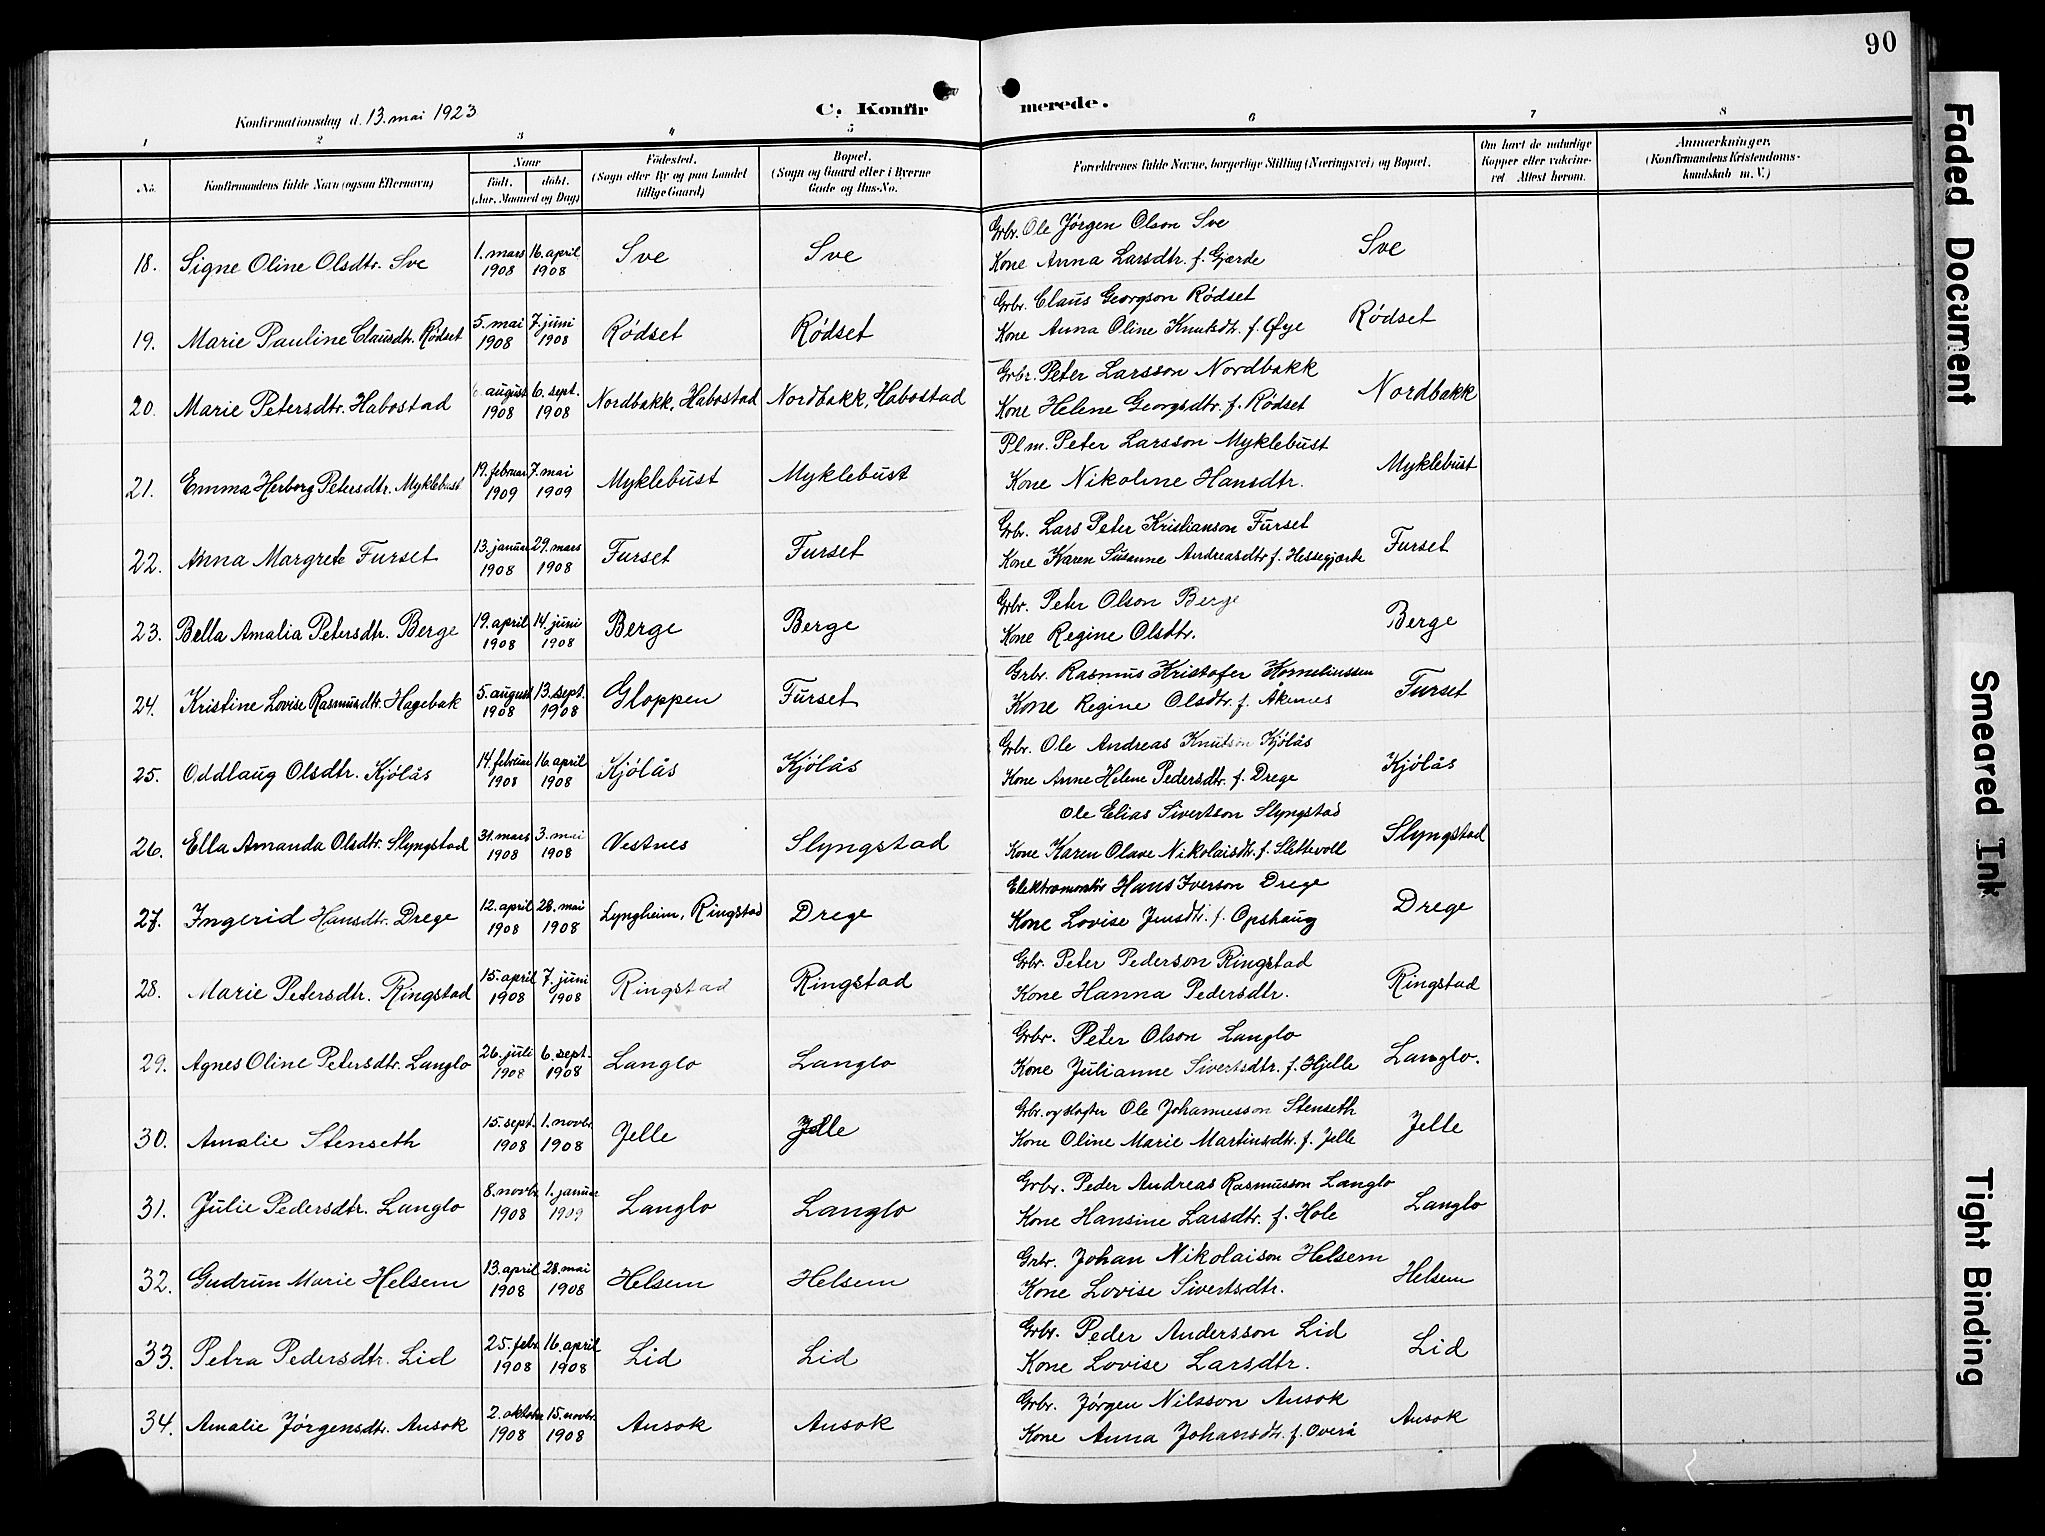 90
Konfirmationsdag d. 13. mai 1923
C. Konfirmerede.
1 2 3 4 5 6 7 8
No. Konfirmandens fulde Navn (ogsaa Efternavn) Naar født. døbt. (Aar, Maaned og Dag) Fødested. (Sogn eller By og paa Landet tillige Gaard) Bopæl. (Sogn og Gaard eller i Byerne Gade og Hus-No. Forældrenes fulde Navne, borgerlige Stilling (Næringsvei) og Bopæl. Om havt de naturlige Kopper eller vaccineret. Attest herom. Anmærkninger. (Konfirmandens Kristendomskundskab m. V.)
18. Signe Oline Olsdtr. Sve 1. mars 1908 16. april 1908 Sve Sve Grbr. Ole Jørgen Olson Sve
Kone Anna Larsdtr. f. Gjærde Sve
19. Marie Pauline Clausdtr. Rødset 5. mai 1908 7. juni 1908 Rødset Rødset Grbr. Claus Georgson Rødset
Kone Anna Oline Knutsdtr. f. Øye Rødset
20. Marie Petersdtr. Habostad august 1908 6. sept. 1908 Nordbakk, Habostad Nordbakk, Habostad Grbr. Peter Larsson Nordbakk
Kone Helene Georgsdtr. f. Rødset Nordbakk
21. Emma Herborg Petersdtr. Myklebust 19. februar 1909 7. mai 1909 Myklebust Myklebust Plm. Peter Larsson Myklebust
Kone Nikoline Hansdtr. Myklebust
22. Anna Margrete Furset 13. januar 1908 29. mars 1908 Furset Furset Grbr. Lars Peter Kristianson Furset
Kone Karen Susanne Andreasdtr f. Hessegjærde Furset
23. Bella Amalia Petersdtr. Berge 19. april 1908 14. juni 1908 Berge Berge Grbr. Peter Olson Berge
Kone Regine Olsdtr. Berge
24. Kristine Lovise Rasmusdtr. Hagebak 5. august 1908 13. sept. 1908 Gloppen Furset Grbr. Rasmus Kristofer Korneliussen
Kone Regine Olsdtr. f. Åkernes Furset
25. Oddlaug Olsdtr. Kjølås 14. februar 1908 16. april 1908 Kjølås Kjølås Grbr. Ole Andreas Knutson Kjølås
Kone Anne Helene Pedersdtr. f. Drege Kjølås
26. Ella Amanda Olsdtr. Slyngstad 31. mars 1908 3. mai 1908 Vestnes Slyngstad Ole Elias Sivertson Slyngstad
Kone Karen Olave Nikolaisdtr. f. Slettevoll Slyngstad
27. Ingerid Hansdtr. Drege 12. april 1908 28. mai 1908 Lyngheim, Ringstad Drege Elektromontør Hans Iverson Drege
Kone Lovise Jensdtr. f. Opshaug Drege
28. Marie Petersdtr. Ringstad 15. april 1908 7. juni 1908 Ringstad Ringstad Grbr. Peter Pederson Ringstad
Kone Hanna Pedersdtr. Ringstad
29. Agnes Oline Petersdtr. Langlo 26. juli 1908 6. sept. 1908 Langlo Langlo Grbr. Peter Olson Langlo
Kone Julianne Sivertsdtr. f. Hjelle Langlo.
30. Amalie Stenseth 15. sept. 1908 1. novbr. 1908 Jelle Jelle Grbr. og slagter Ole Johannesson Stenseth
Kone Oline Marie Martinsdtr. f. Jelle Jelle
31. Julie Pedersdtr. Langlo 8. novbr. 1908 1. januar 1909 Langlo Langlo Grbr. Peder Andreas Rasmusson Langlo
Kone Hansine Larsdtr. f. Hole Langlo
32. Gudrun Marie Helsem 13. april 1908 28. mai 1908 Helsem Helsem Grbr. Johan Nikolaison Helsem
Kone Lovise Sivertsdtr. Helsem
33. Petra Pedersdtr. Lid 25. febr. 1908 16. april 1908 Lid Lid Grbr. Peder Andersson Lid
Kone Lovise Larsdtr. Lid
34. Amalie Jørgensdtr. Ansok 2. oktober 1908 15. novbr. 1908 Ansok Ansok Grbr. Jørgen Nilsson Ansok
Kone Anna Johansdtr. f. Overå Ansok
Faded Document
Smeared Ink
Tight Binding